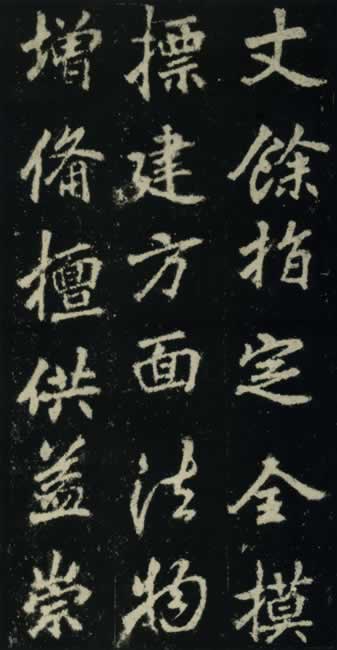 丈餘指定全摸
標建方面法物
增備檀供益崇